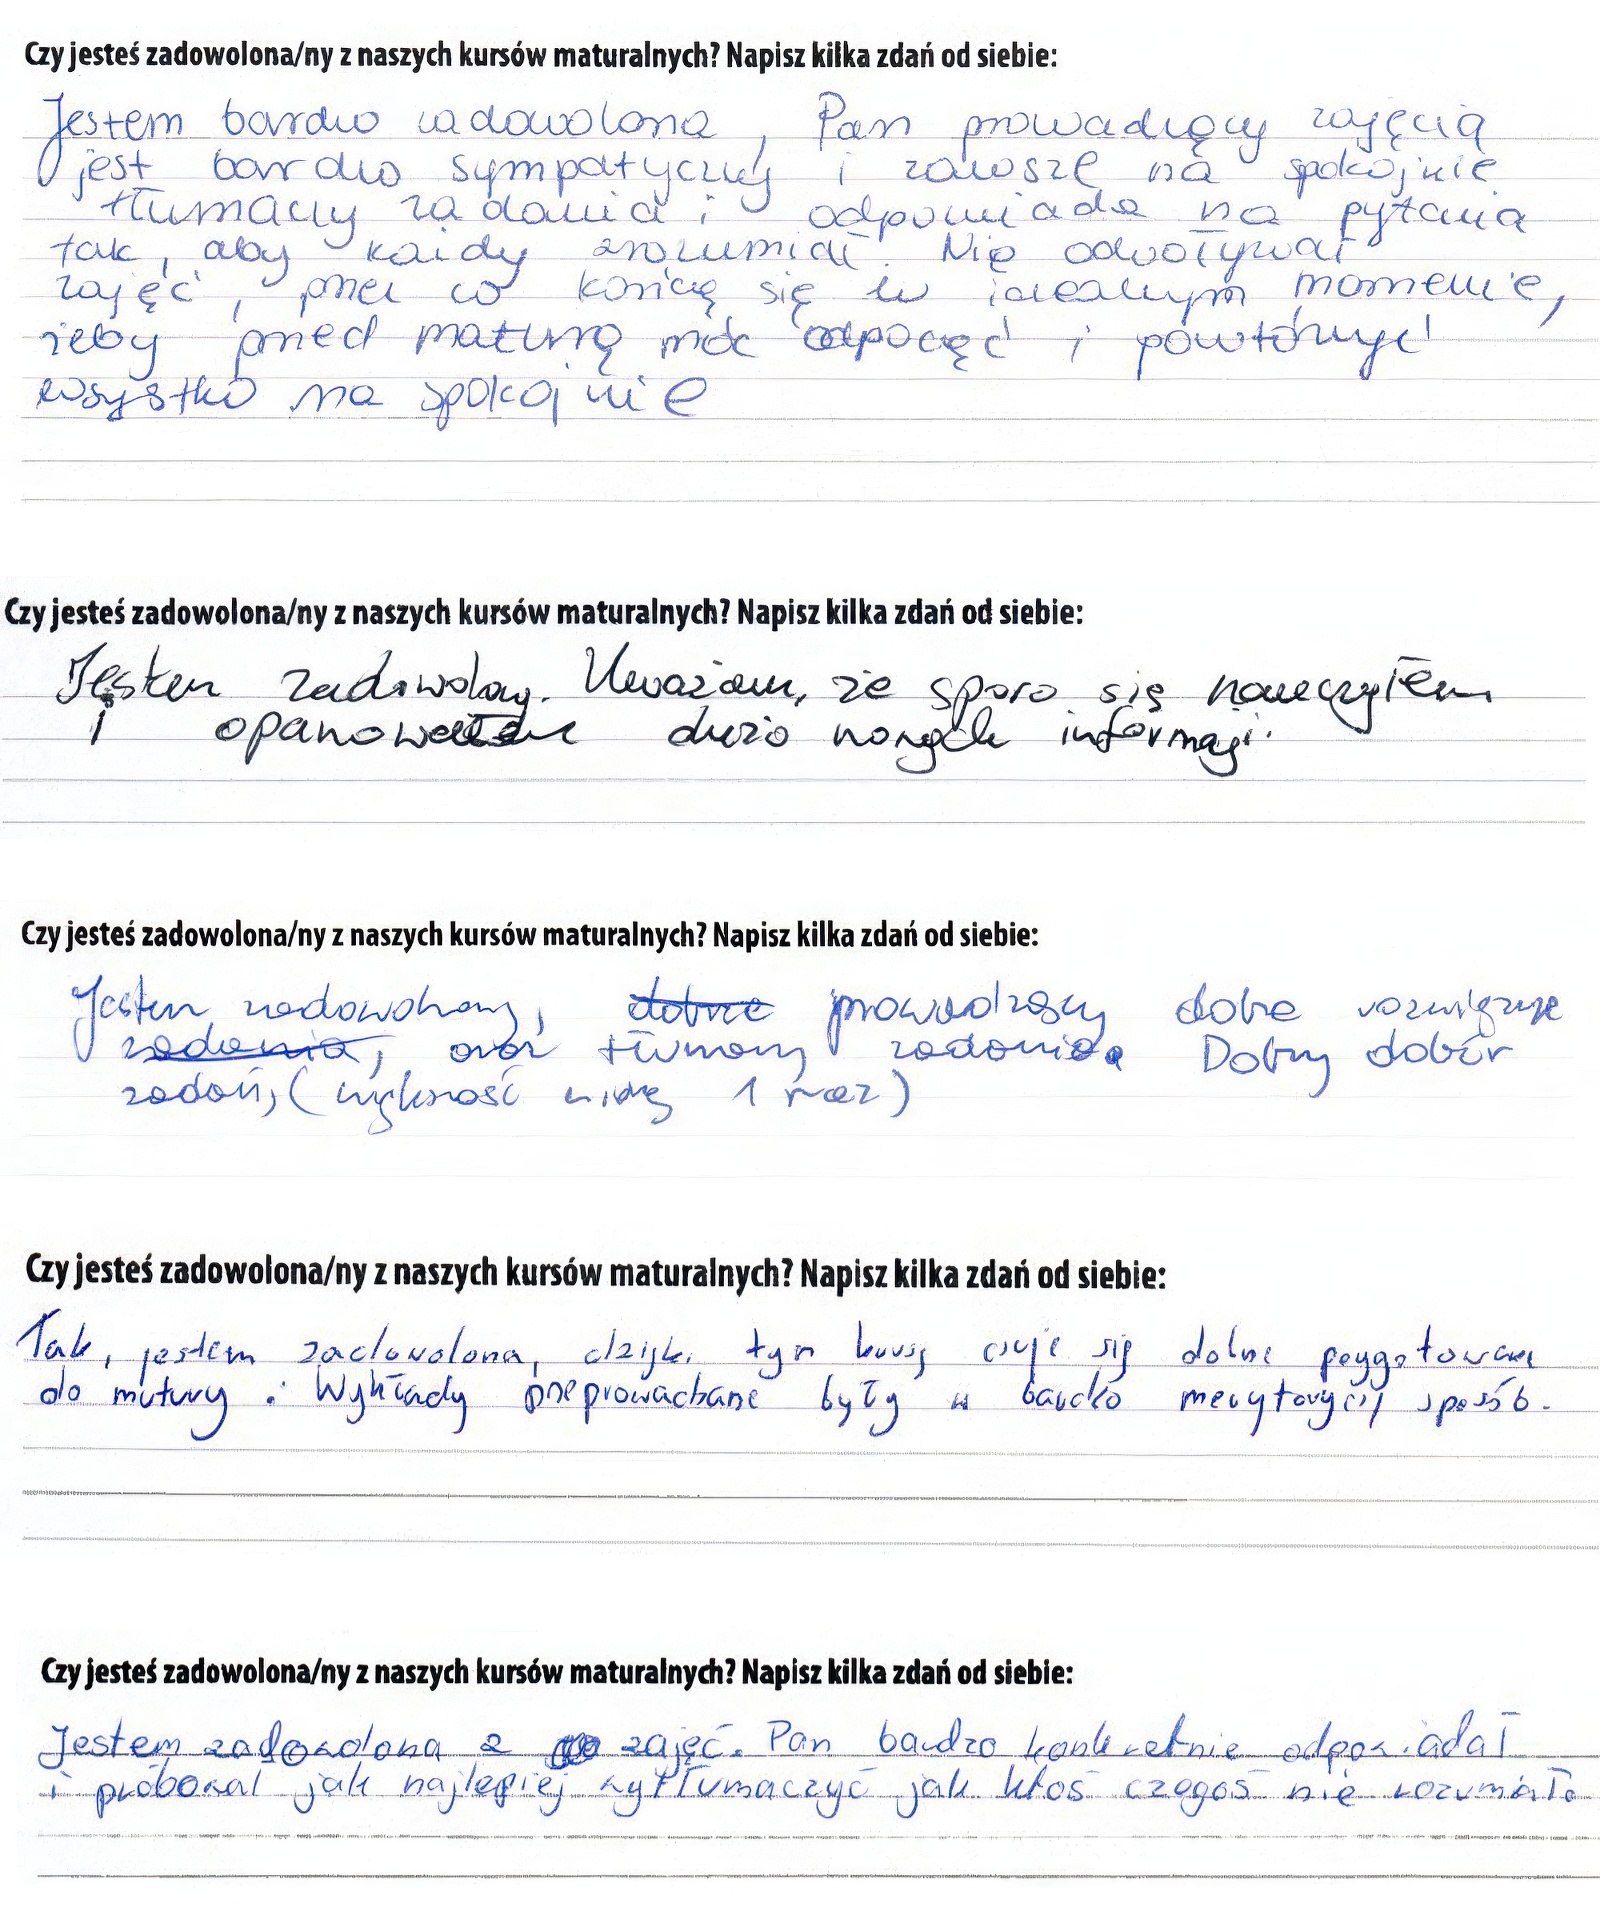 Czy jesteś zadowolona/ny z naszych kursów maturalnych? Napisz kilka zdań od siebie:
Jestem bardzo zadowolona, Pan prowadzący zajęcia
jest bardzo sympatyczny i zawsze na spokojnie
tłumaczy zadania i odpowiada na pytania
tak, aby każdy zrozumiał. Nie odwoływał
zajęć, przez co kończą się w idealnym momencie,
żeby przed maturą móc odpocząć i powtórzyć
wszystko na spokojnie
Czy jesteś zadowolona/ny z naszych kursów maturalnych? Napisz kilka zdań od siebie:
Jestem zadowolony. Uważam, że sporo się nauczyłem
i opanowałem dużo nowych informacji.
Czy jesteś zadowolona/ny z naszych kursów maturalnych? Napisz kilka zdań od siebie:
Jestem zadowolony, dobrze prowadzący dobrze rozwiązuje
zadania, oraz tłumaczy zadania. Dobry dobór
zadań, (większość widzę 1 raz)
Czy jesteś zadowolona/ny z naszych kursów maturalnych? Napisz kilka zdań od siebie:
Tak, jestem zadowolona, dzięki tym kursą czuję się dobrze przygotowana
do matury. Wykłady przeprowadzane były w bardzo merytoryczny sposób.
Czy jesteś zadowolona/ny z naszych kursów maturalnych? Napisz kilka zdań od siebie:
Jestem zadowolona z zajęć. Pan bardzo konkretnie odpowiadał
i próbował jak najlepiej wytłumaczyć jak ktoś czegoś nie rozumiał.